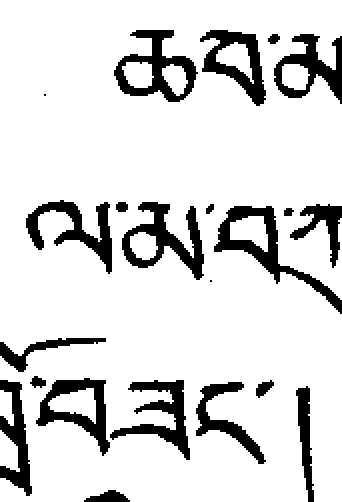 ཆབ་མ
ལ་མ་བ་ཀ
་བཟང་།